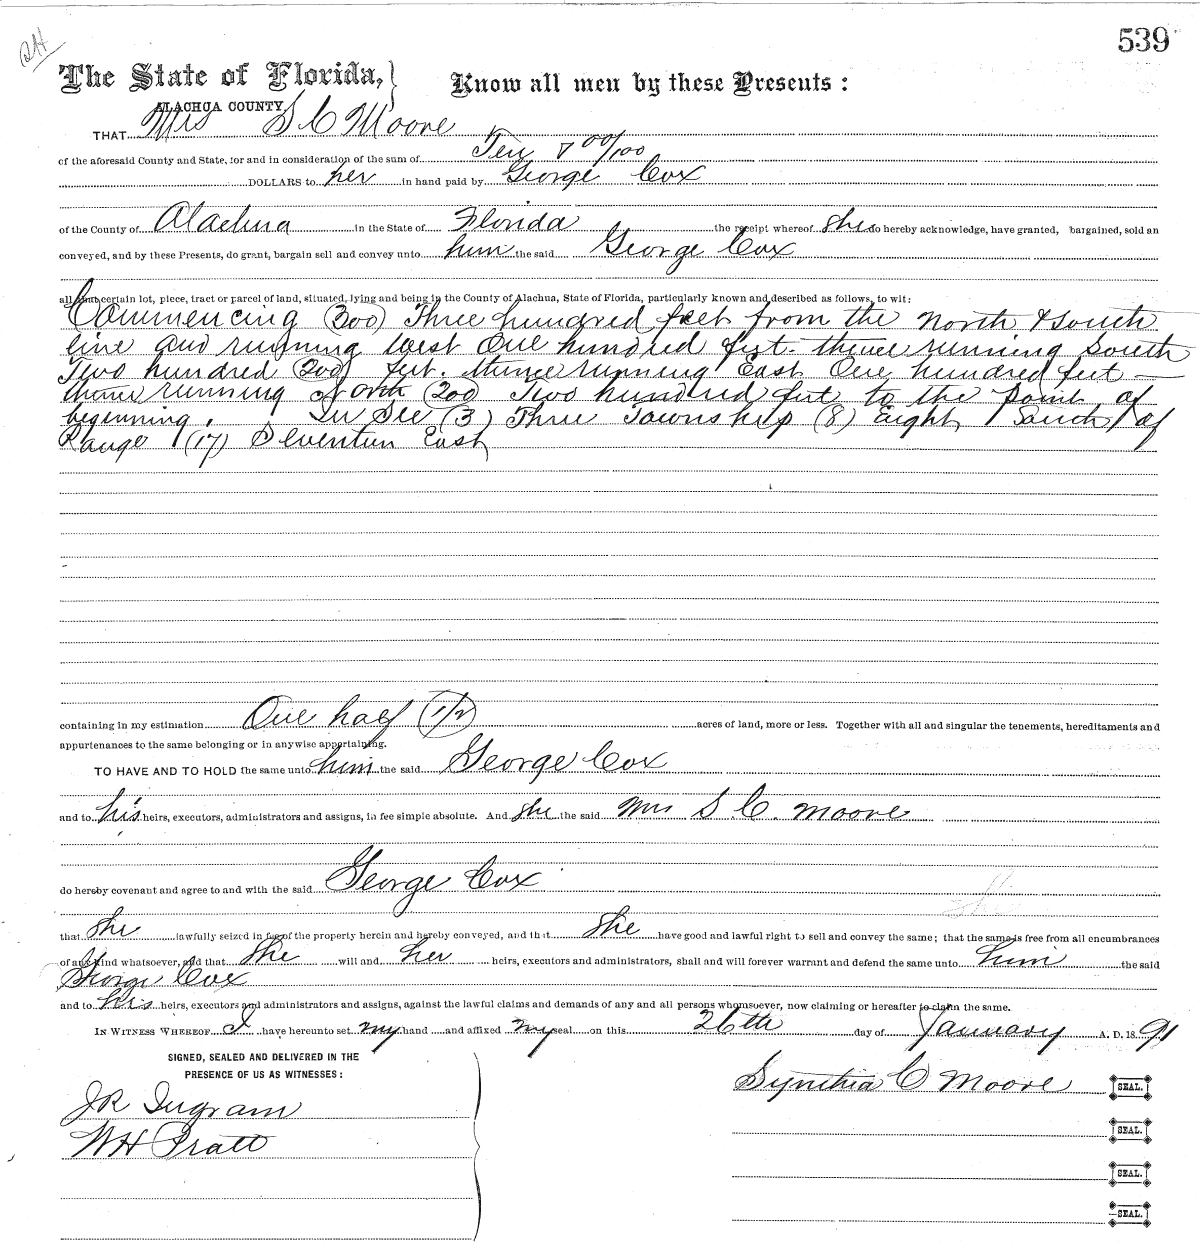 539
The State of Florida, } Know all men by these Presents :
ALACHUA COUNTY
THAT Mrs S C Moore
of the aforesaid County and State, for and in consideration of the sum of Ten & 00/100
DOLLARS to her in hand paid by George Cox
of the County of Alachua in the State of Florida the receipt whereof she do hereby acknowledge, have granted, bargained, sold an
conveyed, and by these Presents, do grant, bargain sell and convey unto him the said George Cox
all that certain lot, piece, tract or parcel of land, situated, lying and being in the County of Alachua, State of Florida, particularly known and described as follows, to wit:
Commencing (300) Three hundred feet from the North & South
line and running West One hundred feet. thence running South
Two hundred (200) feet. thence running East One hundred feet —
thence running North (200) Two hundred feet to the point of
beginning. In Sec (3) Three Township (8) Eight South of
Range (17) Seventeen East
containing in my estimation One half (1/2) acres of land, more or less. Together with all and singular the tenements, hereditaments and
appurtenances to the same belonging or in anywise appertaining.
TO HAVE AND TO HOLD the same unto him the said George Cox
and to his heirs, executors, administrators and assigns, in fee simple absolute. And she the said Mrs S. C. Moore
do hereby covenant and agree to and with the said George Cox
that she lawfully seized in fee of the property herein and hereby conveyed, and that she have good and lawful right to sell and convey the same; that the same is free from all encumbrances
of any kind whatsoever, and that She will and her heirs, executors and administrators, shall and will forever warrant and defend the same unto him the said
George Cox
and to his heirs, executors and administrators and assigns, against the lawful claims and demands of any and all persons whomsoever, now claiming or hereafter to claim the same.
IN WITNESS WHEREOF I have hereunto set my hand and affixed my seal on this 26th day of January A. D. 18 91
SIGNED, SEALED AND DELIVERED IN THE
PRESENCE OF US AS WITNESSES :
Synthia C Moore SEAL.
J R Ingram
SEAL.
W H Pratt
SEAL.
SEAL.